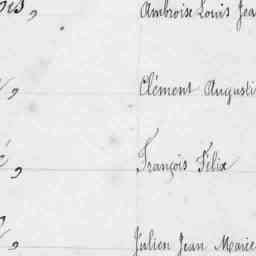 Ambroise Louis Jea
Clément Augusti
François Félix
Julien Jean Marie